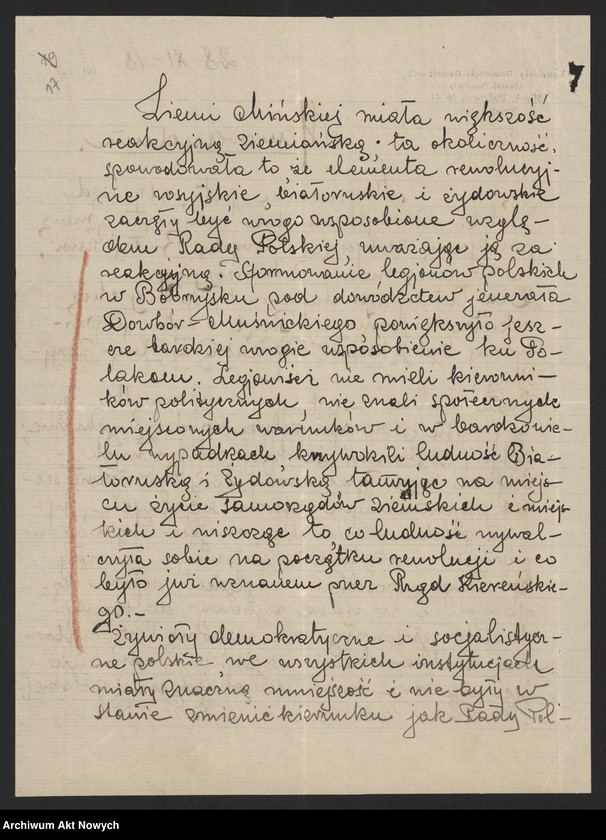 7
Ziemi Mińskiej miała większość
reakcyjną ziemiańską. ta okoliczność,
spowodowała to że elementa rewolucyj-
ne rosyjskie, białoruskie i żydowskie
zaczęły być wrogo usposobione wzglę-
dem Rady Polskiej, uważając ją za
reakcyjną. Formowanie legjonów polskich
w Bobrujsku pod dowództwem jenerała
Dowbór-Muśnickiego powiększyło jesz-
cze bardziej wrogie usposobienie ku Po-
lakom. Legjoniści nie mieli kierowni-
ków politycznych, nie znali społecznych
miejscowych warunków i w bardzo wie-
lu wypadkach krzywdzili ludność Bia-
łoruską i Żydowską tamując na miejs-
cu życie samorządów ziemskich i miejs-
kich i niszcząc to co ludność wywal-
czyła sobie na początku rewolucji i co
było już uznanem przez Rząd Kiereńskie-
go.-
Żywioły demokratyczne i socjalistycz-
ne polskie we wszystkich instytucjach
miały znaczną mniejszość i nie były w
stanie zmienić kierunku jak Rady Pol-
Archiwum Akt Nowych